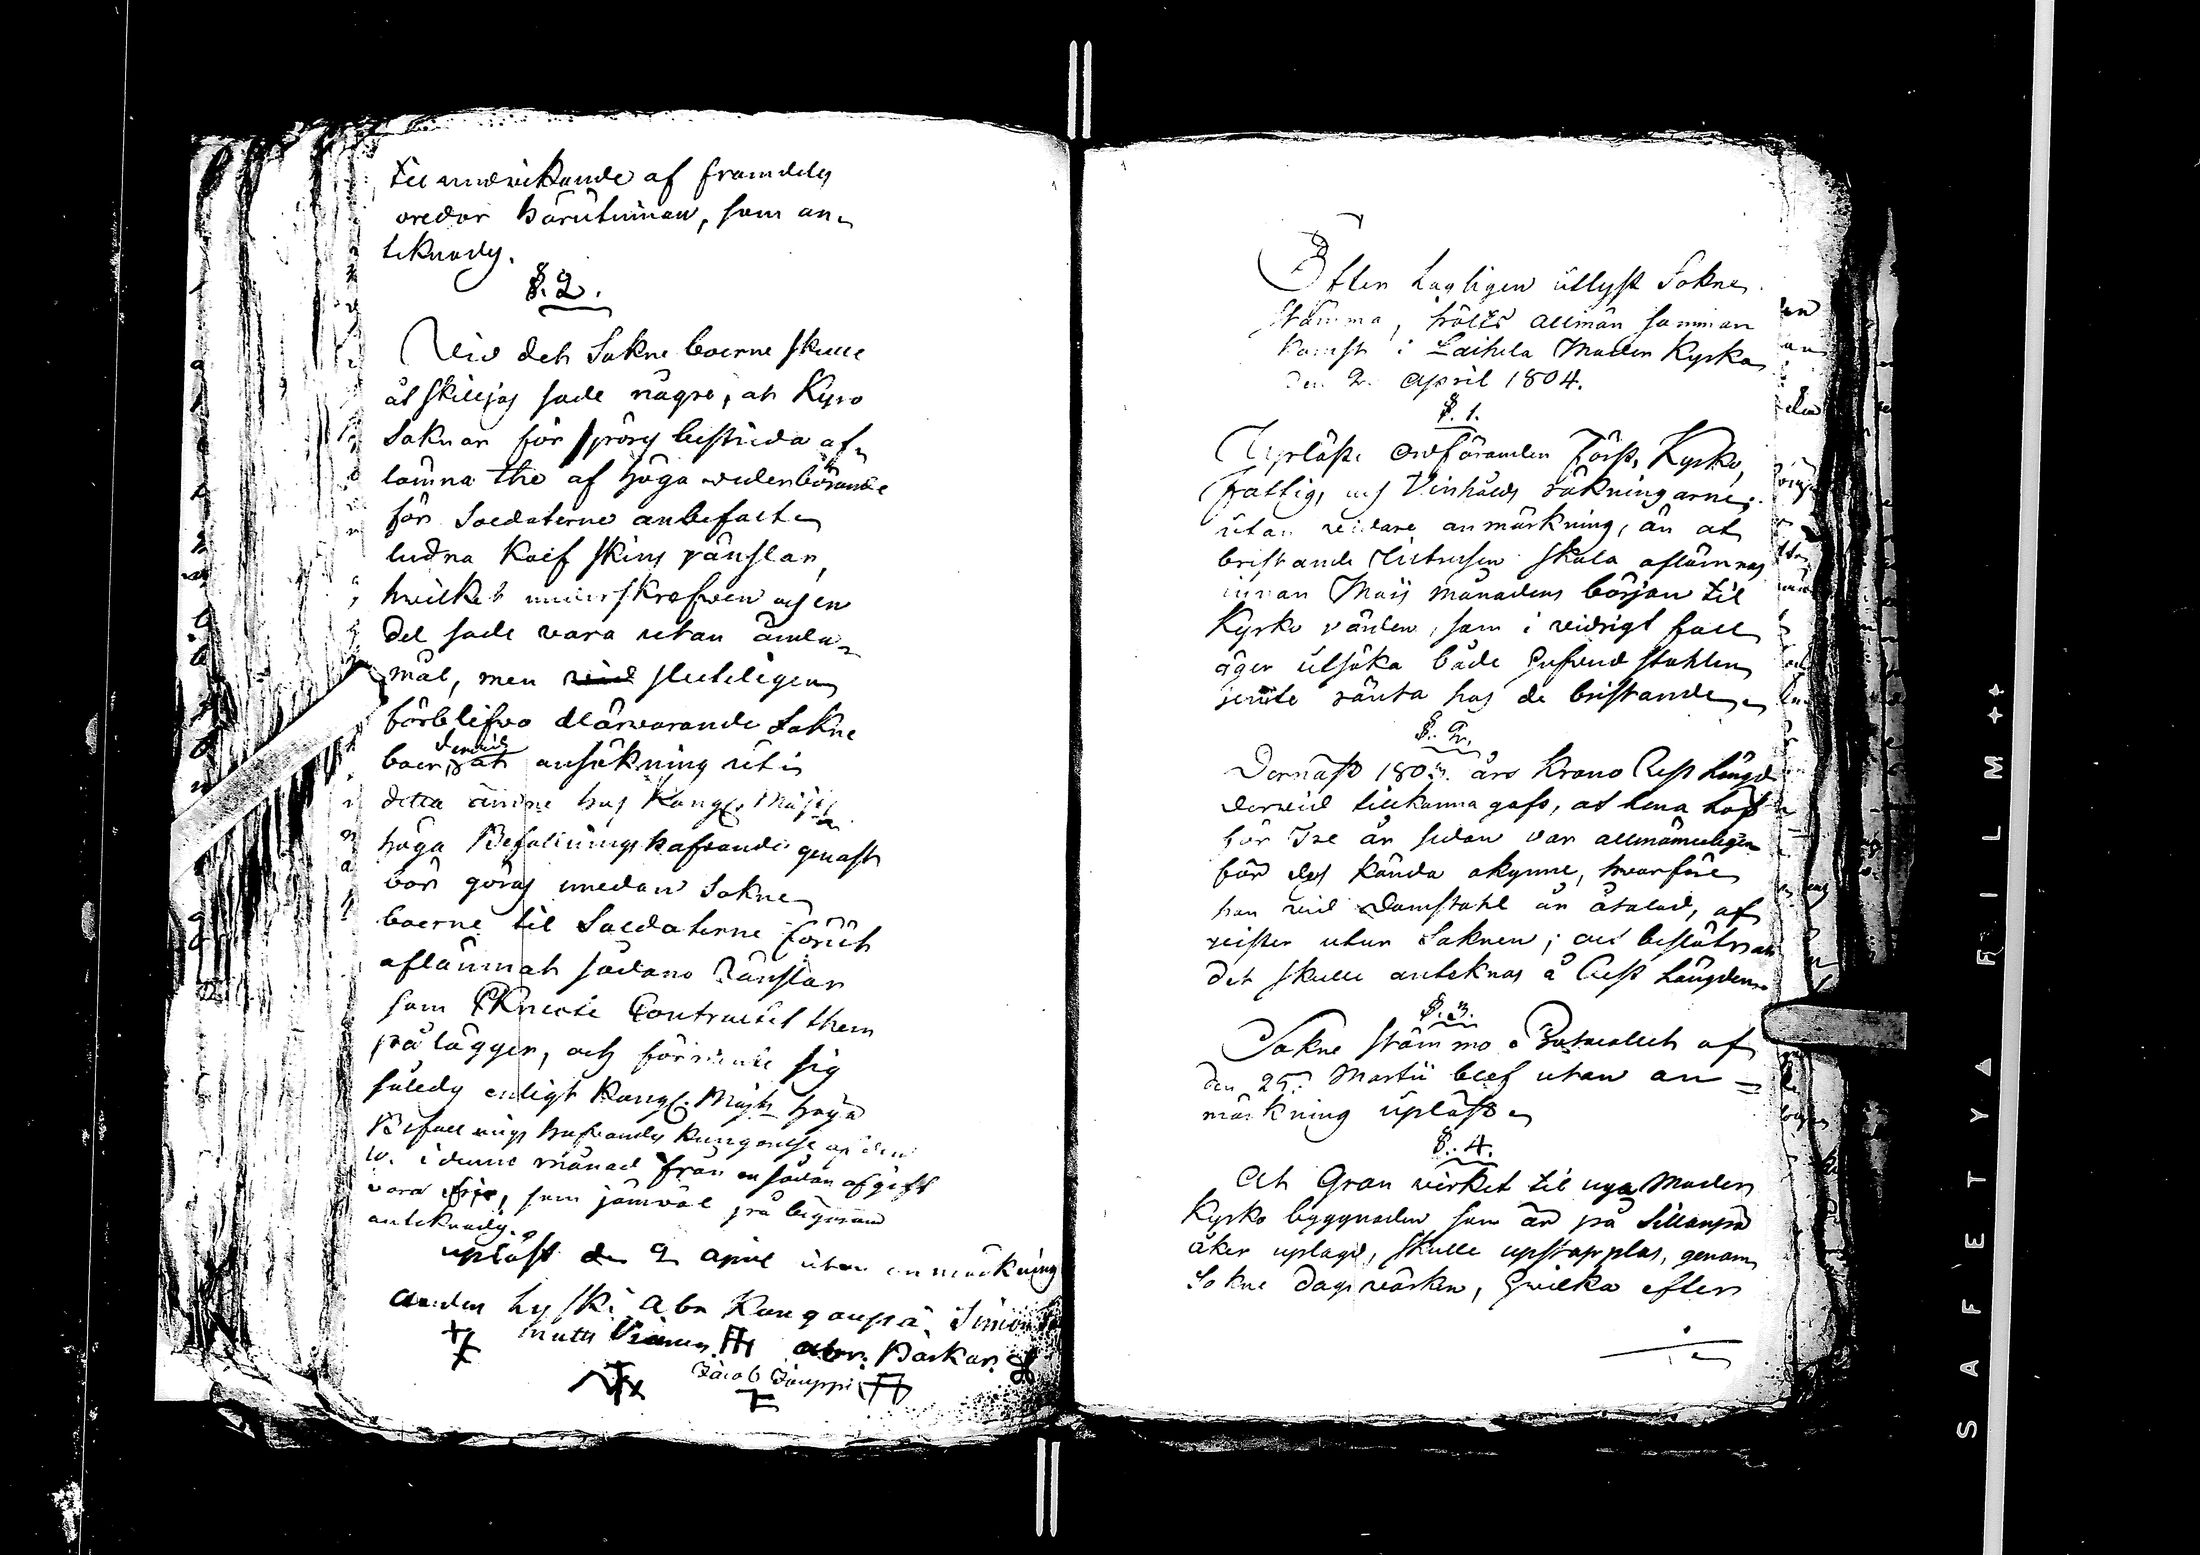 til undvikande af framdeles
oredor härutinnan, som an-
teknades.
§. 2.
Vid det Sokne boerne skulle
åtskiljas sade någre, at Kyro
Soknar för spörs bestrida af-
lämna the af höga wederbörande
för Soldaterne anbefalte
ludna Kalf skins ränslar,
hvilket underskrefven och en
del sade vara utan ändamål-
mål, men sluteligen
förblifvo därvarande Sokne
boer derwid, at ansökning uti
detta ämne hos Kongl. Majts
höga Befalningshafvande genast
bör göras medan Sokne
boerne til Soldaterne förut
aflämnat sådano Ränslar
som Knecte Contractet them
pålägger, och förmente sig
således enligt Kongl. Majts höga
Befallnings hafvandes Kungörelse af den
10. i denne månad från en sådan afgift
vara frie, som jämväl på begäran
anteknades.
uplast den 2 April utan anmärkning
Anders Hyski Abr Kangaspä Simon
Matts Abr: Parkar
Jacob Jouppi
Efter Lagligen utlyst Sokne
Stämma, hölts allmän samman
komst i Laihela Moder Kyrka
den 2. April 1804.
§. 1.
Uplästes ordföranden Först, Kyrko,
Fattig, och Vinhålds räkningarne,
utan vidare anmärkning, än at
bristande skola aflämnas
innan Maij månadens början til
Kyrko värden, som i vidrigt fall
äger utsöka både hufvud stohlen
jemte ränta hos de bristande.
§. 2.
Dernäst 1803. års Krono Rest Längd
derwid tillkänna gafs, at Lena
för Tre år sedan var allmänneligen
för des kända okynne, hvarföre
hon vid Domstohl är åtalad, af
vister utur Soknen; och beslöts at
det skulle anteknas å Rest Längden.
§. 3.
Sokne Stämmo Protocollet af
den 25. Martii blef utan an=
märkning upläst
§. 4.
At Gran virket til nya Moder
Kyrko byggnaden som är på Sillanpä
åker uplagd, skulle upstapplas, genom
Sokne dagsvärken, hvilka efter